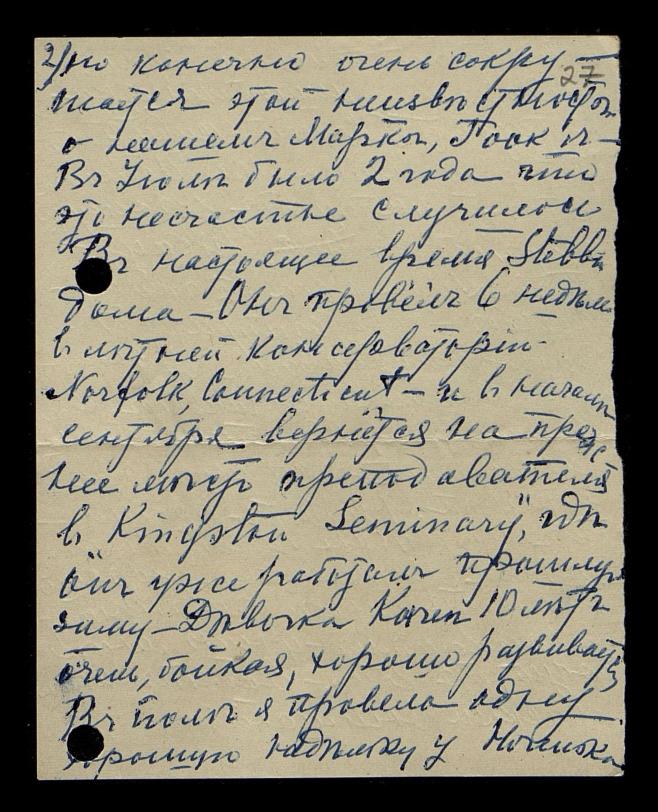 2) но конечно очень сокру- 27
шается этой неизвѣстностью
о нашемъ Маркѣ,
Въ Іюлѣ было 2 года что
это несчастье случилось
Въ настоящее время Stebbi
дома – Онъ провёлъ 6 недѣль
в лѣтней консерваторіи
Norfolk, Connecticut – и в началѣ
сентября вернётся на преж
нее мѣсто преподавателя
в Kingston Seminary", гдѣ
онъ уже работалъ прошлую
зиму – Дѣвочка Карен 10 лѣтъ
очень бойкая, хорошо развивается
Въ іюлѣ я провела одну
хорошую недѣльку у